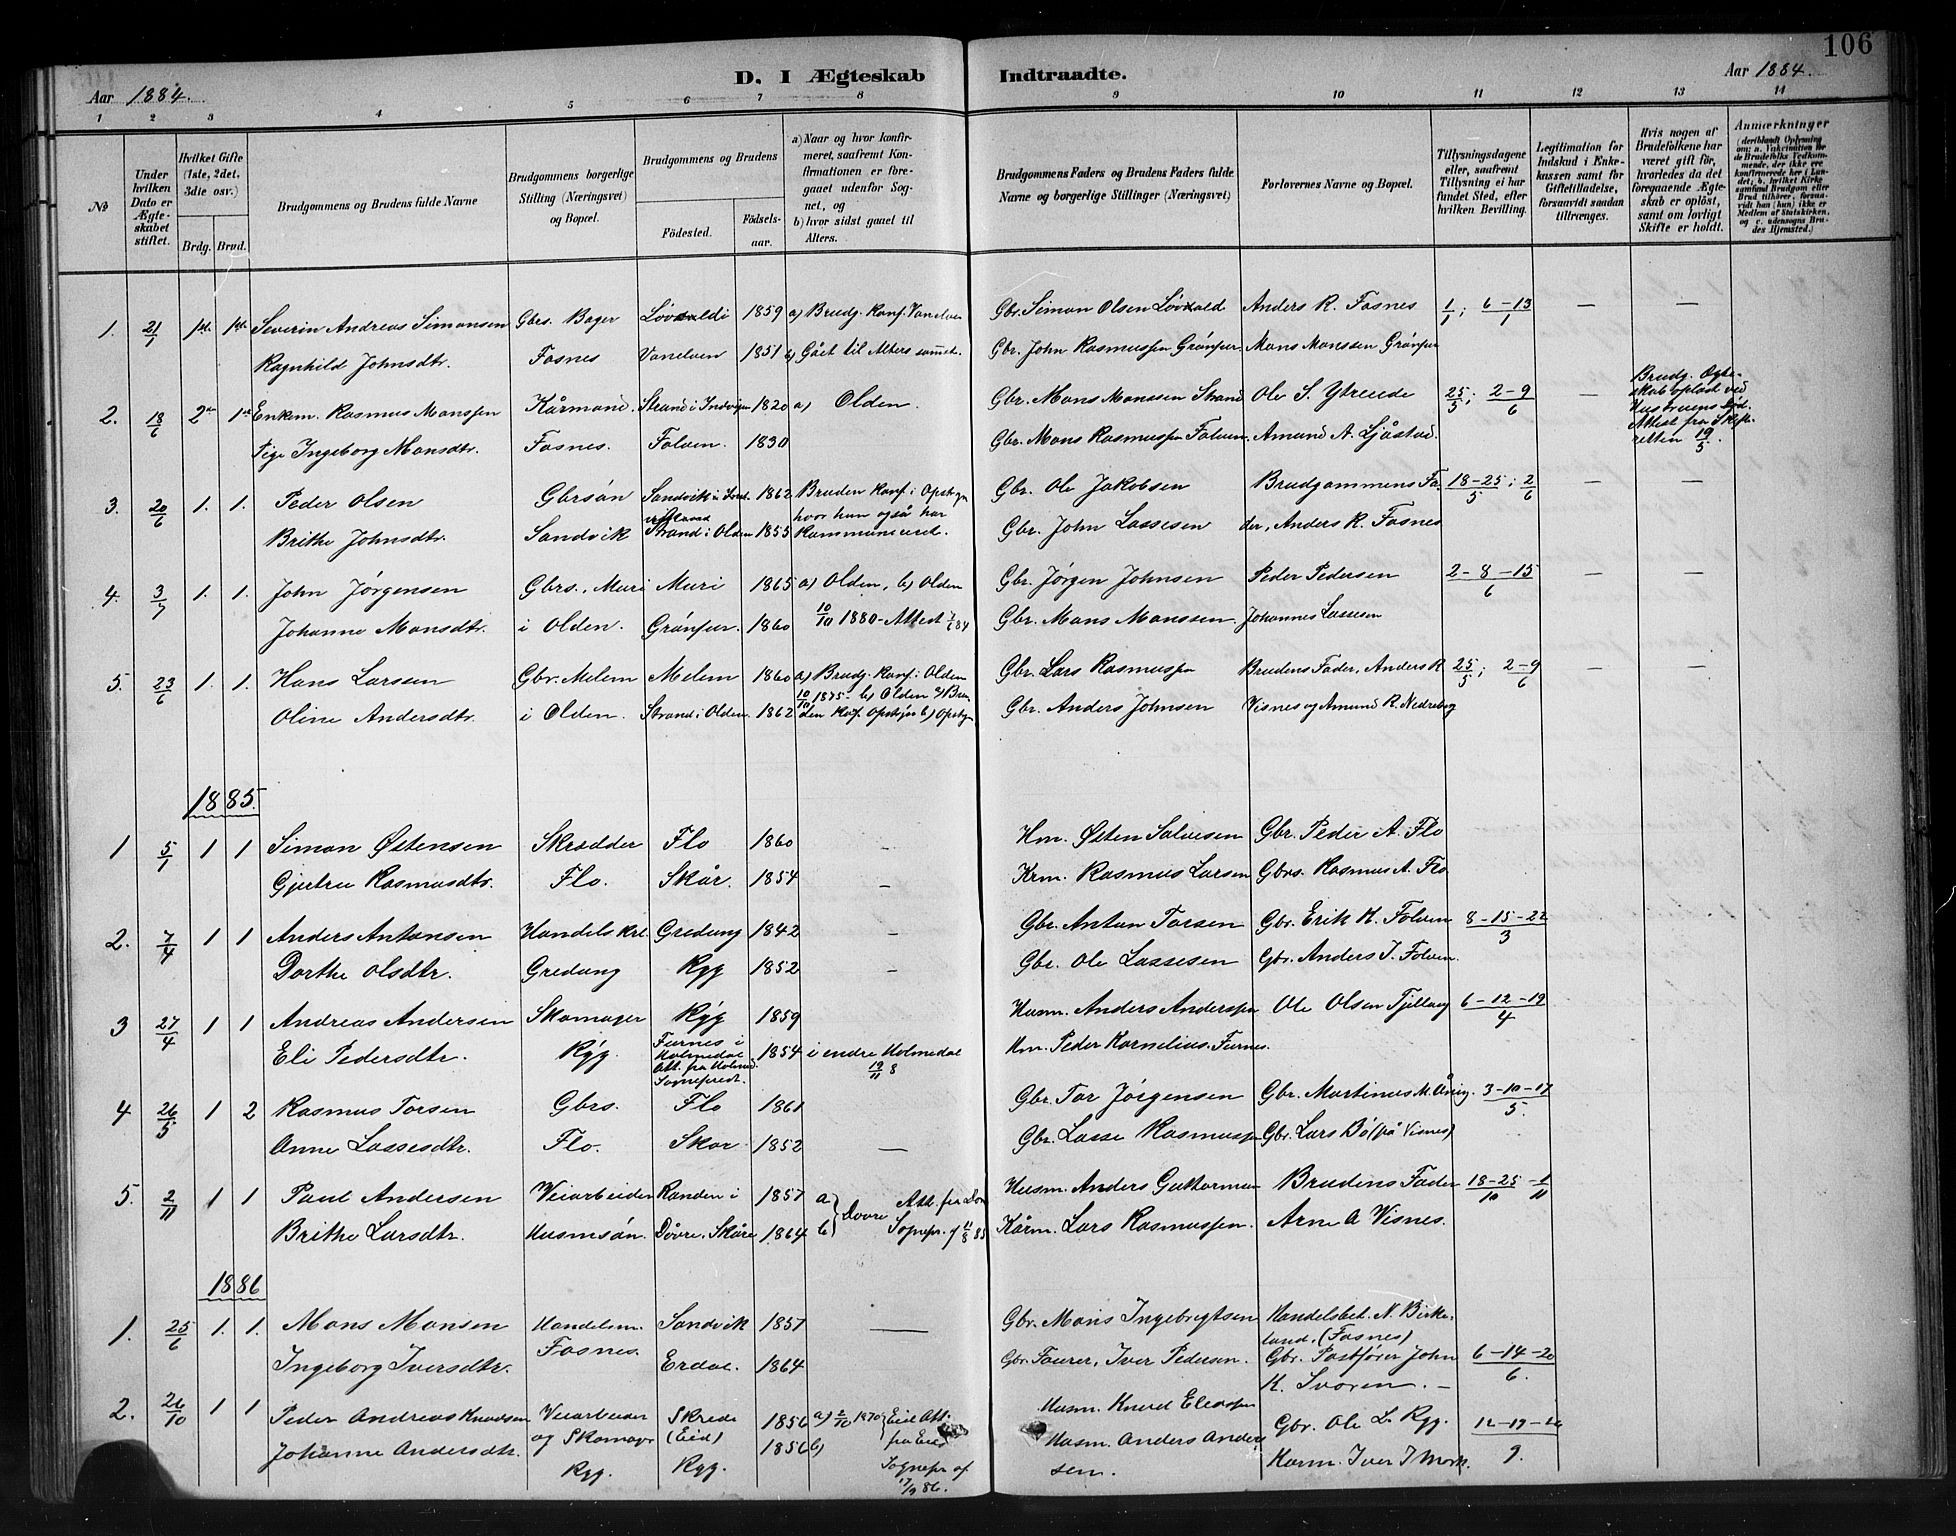 106
D. I Ægteskab Indtraadte.
Aar 1884. Aar 1884.
1 2 3 4 5 6 7 8 9 10 11 12 13 14
№
Under hvilken Dato er Ægteskabet stiftet.
Hvilket Gifte (1ste, 2det, 3die osv.)
Brdg. Brud.
Brudgommens og Brudens fulde Navne
Brudgommens borgerlige Stilling (Næringsvei) og Bopæl.
Brudgommens og Brudens
Födested. Födselsaar.
a) Naar og hvor konfirmeret, saafremt Konfirmationen er foregaaet udenfor Sognet, og
b) hvor sidst gaaet til Alters.
Brudgommens Faders og Brudens Faders fulde Navne og borgerlige Stillinger (Næringsvei)
Forlovernes Navne og Bopæl.
Tillysningsdagene eller, saafremt Tillysning ei har fundet Sted, efter hvilken Bevilling.
Legitimation for Indskud i Enkekassen samt for Giftetilladelse, forsaavidt saadan tiltrænges.
Hvis nogen af Brudefolkene har været gift för, hvorledes da det foregaaende Ægteskab er oplöst, samt om lovligt Skifte er holdt.
Anmærkninger (deriblandt Oplysning om: a. Vaccination for de Brudefolks Vedkommende, der ikke ere konfirmerede her i Landet; b. hvilket Kirkesamfund Brudgom eller Brud tilhörer, forsaavidt han (hun) ikke er Medlem af Statskirken, og c. udensogns Brudes Hjemsted.)
1. 21/1 1ste 1ste Severin Andreas Simonsen Gbrs. Bager 1859 a) Brudg. Konf. Vanelven Gbr. Simon Olsen Anders R. Fosnes 1/1; 6–13/1 — —
Ragnhild Johnsdtr. Fosnes Vanelven 1851 b) Gået til Alters sammest. Gbr. John Rasmussen Grónfur Mons Monssen Grónfur
2. 18/6 2den 1ste Enkm. Rasmus Monssen Kårmand. Strand i Indvigen 1820 a) Olden. Gbr. Mons Monssen Strand Ole S. Ytreeide 25/5; 2–9/6 — Brudg. Ægteskab opløst ved Hustruens Død. Attest fra Skifteretten 19/5.
Pige Ingeborg Monsdtr. Fosnes. Folven. 1830 Gbr. Mons Rasmussen Folven Amund A. Ljåstad.
3. 20/6 1. 1. Peder Olsen Gbrsón Sandvik i 1862 Bruden konf. i Opstryn Gbr. Ole Jakobsen Brudgommens Fa- 18–25/5; 2/6 — —
Brithe Johnsdtr. Sandvik Strand i Olden 1855 hvor hun også har kommuniceret. Gbr. John Lassesen der, Anders R. Fosnes
4. 3/7 1. 1. John Jørgensen Gbrs., Muri Muri 1865 a) Olden, b) Olden Gbr. Jørgen Johnsen Peder Pedersen 2–8–15/6 — —
Johanne Monsdtr. i Olden. Grónfur. 1860 10/10 1880 – Attest 84 Gbr. Mons Monssen Johannes Lassesen
5. 23/6 1. 1. Hans Larsen Gbr. Melem Melem 1860 a) Brudg. Konf. i Olden Gbr. Lars Rasmussen Brudens Fader, Anders R. 25/5; 2–9/6 — —
Oline Andersdtr. i Olden. Strand i Olden. 1862 10/10 1875 – b) Olden a) Bruden Konf. Opstryn b) Opstryn Gbr. Anders Johnsen Visnes og Amund R. Nedreberg
1885.
1 5/1 1 1 Simon Østensen Skrædder Flo 1860 – Hm. Østen Salvesen Gbr. Peder A. Flo
Gjertru Rasmusdtr. Flo. Skår. 1854 – Krm. Rasmus Larsen Gbrs. Rasmus A. Flo
2. 7/4 1 1 Anders Antonsen Handelskrl. Gredung 1842 – Gbr. Anton Torsen Gbr. Erik K. Folven 8–15–22/3
Dorthe Olsdtr. Gredung Ryg 1852 – Gbr. Ole Lassesen Gbr. Anders J. Folven.
3 27/4 1 1 Andreas Andersen Skomager Ryg 1859 Husm. Anders Anderssen Ole Olsen Tjellaug 6–12–19/4
Eli Pedersdtr. Ryg. Furnes i Holmedal Att. fra Holmed. Sogneprest. 1854 i endre Holmedal 19/11 8 Hm. Peder Kornelius. Furnes.
4 26/5 1 2 Rasmus Torsen Gbrs. Flo 1861 Gbr. Tor Jørgensen Gbr. Martinus M. 3–10–17/5.
Anne Lassesdtr. Flo. Skår 1852 — Gbr. Lasse Rasmussen Gbr. Lars Bø (på Visnes)
5. 2/11 1 1 Paul Andersen Veiarbeider Randen i 1857 a Husm. Anders Guttormsen Brudens Fader 18–25/10 – 1/11
Brithe Larsdtr. Husmsón. Dovre. Skåre 1864 b} Dovre Att. fra Dovre Sognepr. 11/8 85 Kårm. Lars Rasmussen. Arne A Visnes.
1886
1. 25/6 1. 1. Mons Monsen Handelsm. Sandvik 1857 — Gbr. Mons Ingebrigtsen Handelsbet. N. Birkeland. (Fosnes)
Ingeborg Iversdtr. Fosnes. Erdal. 1864 Gbr. Faurer, Iver Pedersen. Gbr. Postfører John K. Svoren. – 6–14–20/6.
2. 26/10 1 1 Peder Andreas Knudsen Veiarbeider Skrede (Eid) 1856 a) 2/10 1870 Eid Att. fra Eid Sognepr. af 17/9 86. Husm. Knud Eliassen Gbr. Ole L. Ryg. 12–19–26/9.
Johanne Andersdtr. og Skomager Ryg. Ryg. 1856 b) Husm. Anders Andersen. Karm. Iver I Mork.